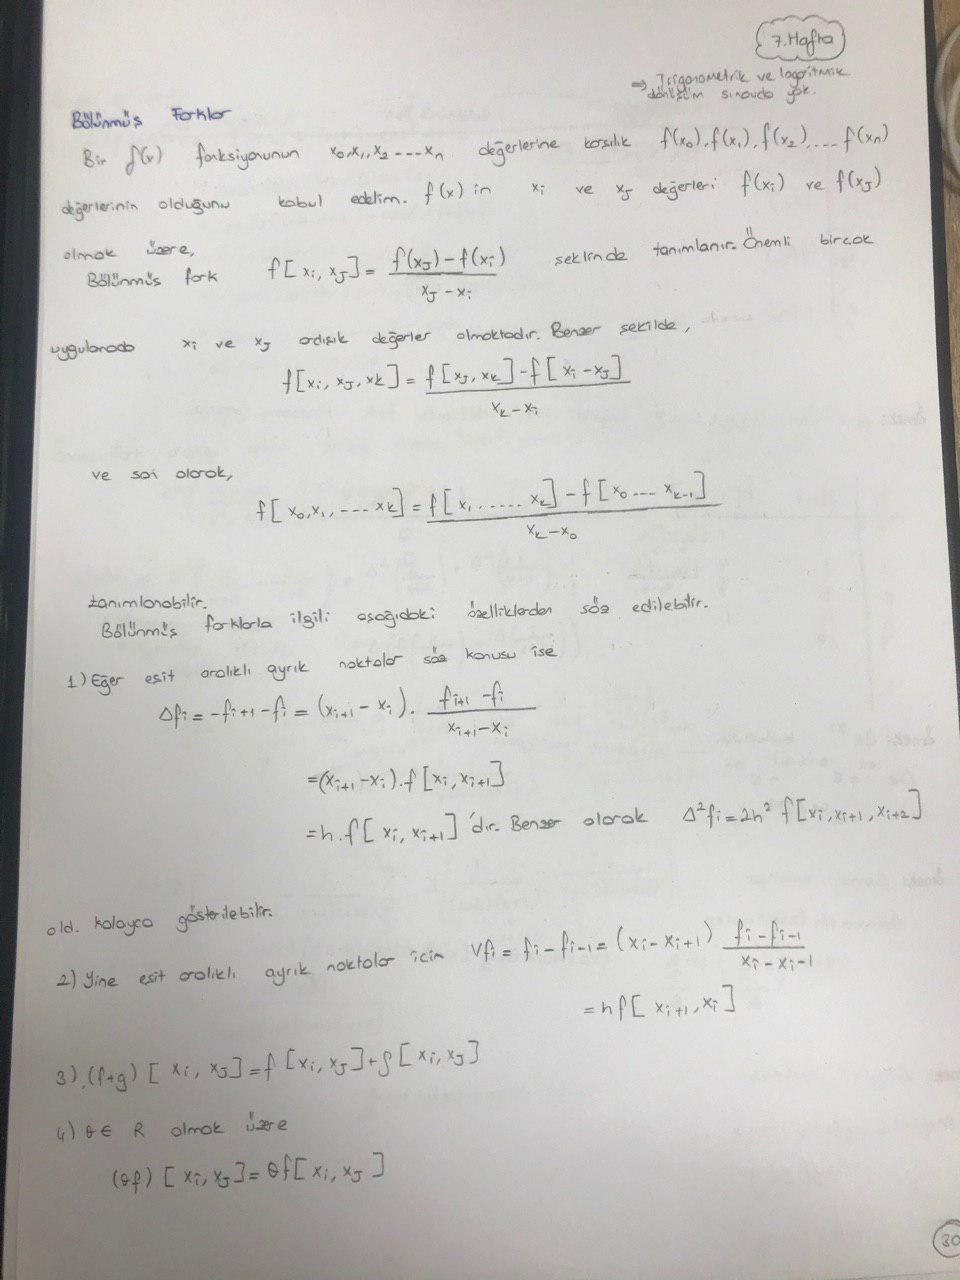 7.Hafta
⇒ Trigonometrik ve logaritmik
dönüşüm sınavda yok.
Bölünmüş Farklar
Bir f(x) fonksiyonunun x₀,x₁,x₂ ---- xₙ değerlerine karşılık f(x₀), f(x₁), f(x₂), .... f(xₙ)
değerlerinin olduğunu kabul edelim. f(x) in xᵢ ve xⱼ değerleri f(xᵢ) ve f(xⱼ)
olmak üzere,
Bölünmüş fark f[xᵢ, xⱼ] = (f(xⱼ) - f(xᵢ)) / (xⱼ - xᵢ) şeklinde tanımlanır. Önemli birçok
uygulamada xᵢ ve xⱼ ardışık değerler olmaktadır. Benzer şekilde,
f[xᵢ, xⱼ, xk] = (f[xⱼ, xk] - f[xᵢ - xⱼ]) / (xk - xᵢ)
ve son olarak,
f[x₀, x₁, ---- xk] = (f[x₁ ...... xk] - f[x₀ ---- xk-1]) / (xk - x₀)
tanımlanabilir.
Bölünmüş farklarla ilgili aşağıdaki özelliklerden söz edilebilir.
1) Eğer eşit aralıklı ayrık noktalar söz konusu ise
Δfi = -fi+1 - fi = (xi+1 - xi) . (fi+1 - fi) / (xi+1 - xi)
= (xi+1 - xi) . f[xi, xi+1]
= h . f[xi, xi+1] 'dir. Benzer olarak Δ²fi = 2h² f[xi, xi+1, xi+2]
old. kolayca gösterilebilir.
2) Yine eşit aralıklı ayrık noktalar için ∇fi = fi - fi-1 = (xi - xi+1) (fi - fi-1) / (xi - xi-1)
= hf[xi+1, xi]
3) (f+g) [xi, xj] = f[xi, xj] + g[xi, xj]
4) θ ∈ R olmak üzere
(θf) [xi, xj] = θf[xi, xj]
30